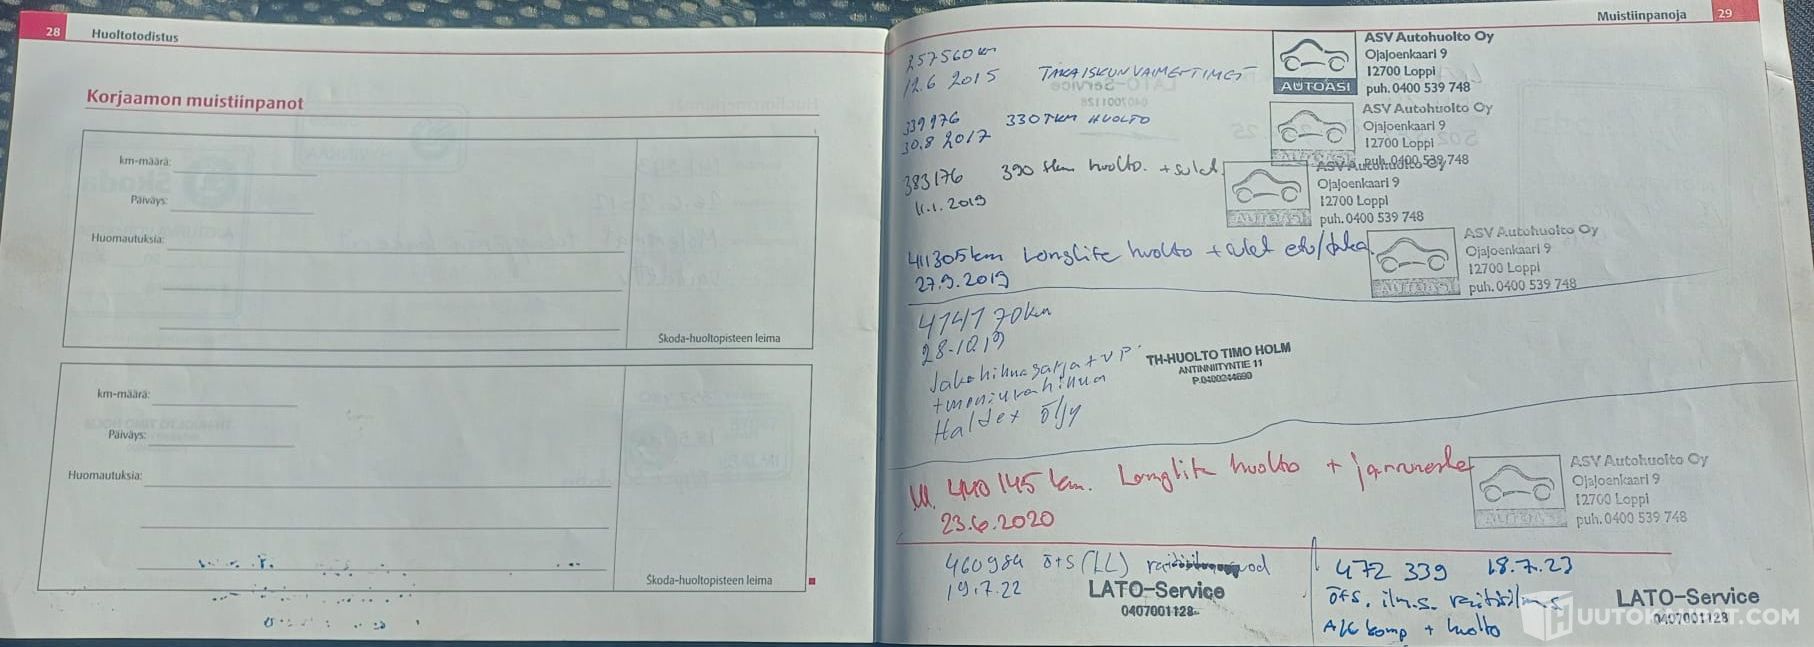 28 Huoltotodistus
Korjaamon muistiinpanot
km-määrä:
Päiväys:
Huomautuksia:
Škoda-huoltopisteen leima
km-määrä:
Päiväys:
Huomautuksia:
Škoda-huoltopisteen leima
Muistiinpanoja 29
257560 km
12.6 2015 TAKAISKUNVAIMENTIMET
ASV Autohuolto Oy
Ojajoenkaari 9
12700 Loppi
AUTOASI puh. 0400 539 748
339976 330TKM HUOLTO
30.8 2017
ASV Autohuolto Oy
Ojajoenkaari 9
12700 Loppi
AUTOASI puh. 0400 539 748
383176 390 tkm huolto. + sulat.
11.1.2019
ASV Autohuolto Oy
Ojajoenkaari 9
12700 Loppi
AUTOASI puh. 0400 539 748
411305km Longlife huolto + sulat etu/taka
27.9.2019
ASV Autohuolto Oy
Ojajoenkaari 9
12700 Loppi
AUTOASI puh. 0400 539 748
414170km
28.10.19
Jakohihnasarja + VP
+ moniurahihna
Haldex öljy
TH-HUOLTO TIMO HOLM
ANTINNIITYNTIE 11
P.0400244690
440145 km. Longlife huolto + jarruneste
23.6.2020
ASV Autohuolto Oy
Ojajoenkaari 9
12700 Loppi
puh. 0400 539 748
460984 ö+s (LL)
19.7.22
LATO-Service
0407001128
472 339 18.7.23
ö+s. ilm.s. raitisilm.s
A/C komp + huolto
LATO-Service
0407001128
HUUTOKAUPAT.COM